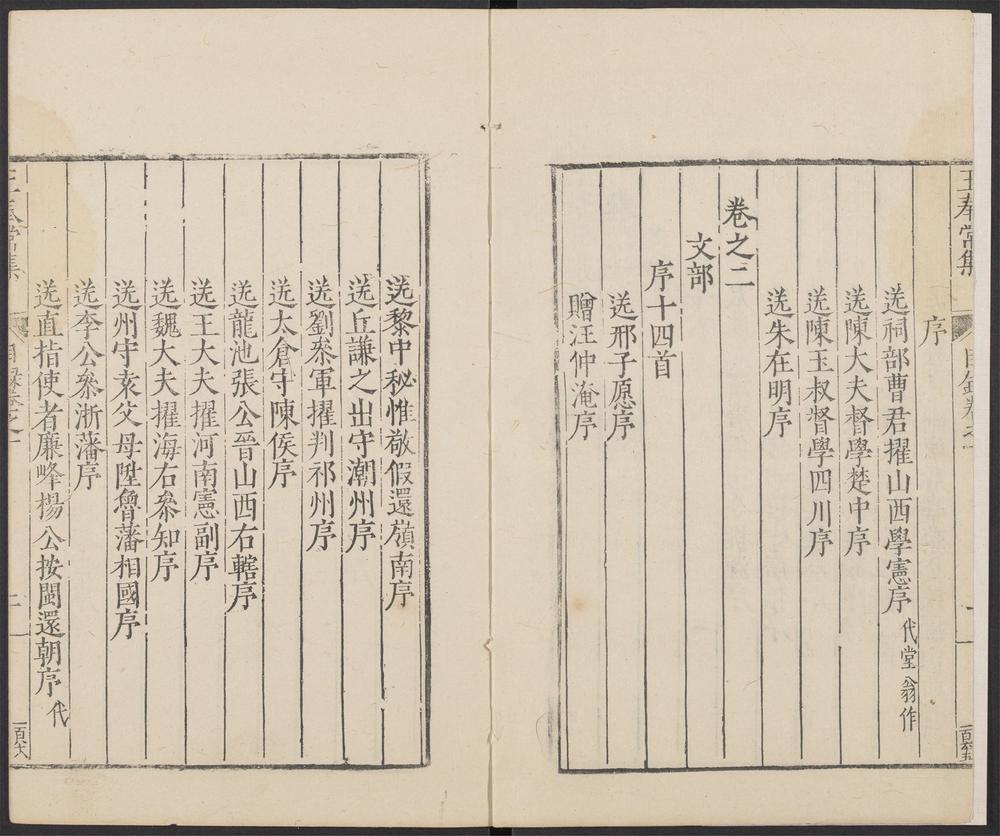 王奉常集 目錄卷之一
序
送祠部曹君擢山西學憲序 代堂翁作
送陳大夫督學楚中序
送陳玉叔督學四川序
送朱在明序
卷之二
文部
序十四首
送邢子愿序
贈汪仲淹序
送黎中秘惟敬假還嶺南序
送丘謙之出守潮州序
送劉叅軍擢判祁州序
送太倉守陳侯序
送龍池張公晉山西右轄序
送王大夫擢河南憲副序
送魏大夫擢海右叅知序
送州守袁父母陞魯藩相國序
送李公叅浙藩序
送直指使者廉峰楊公按閩還朝序 代
王奉常集 目錄卷之